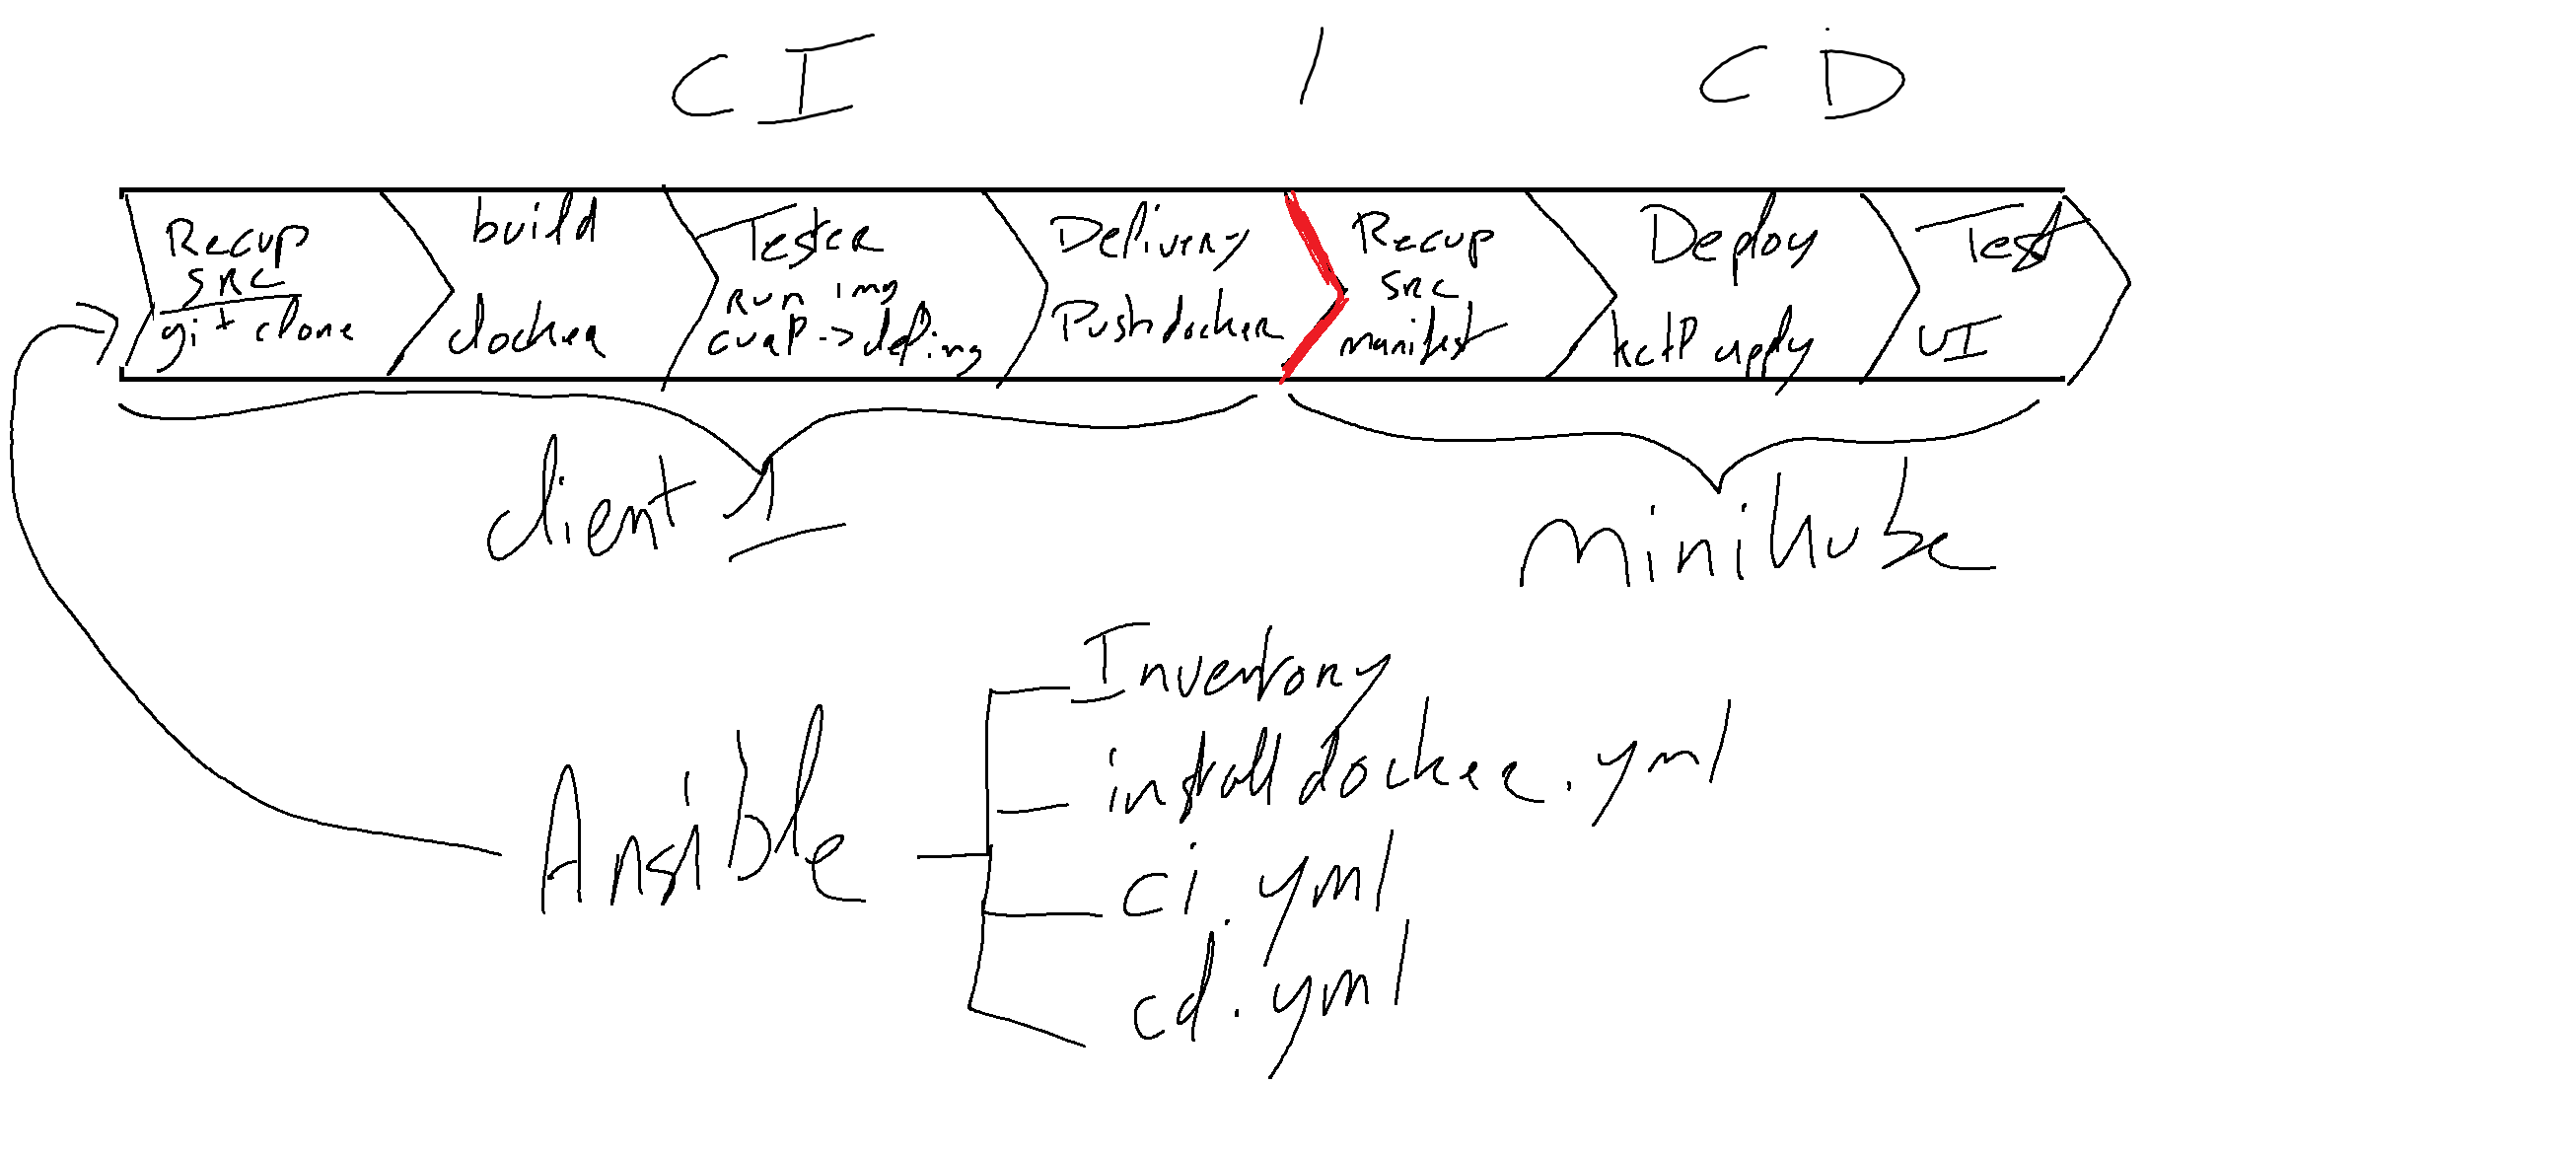 CI / CD
Recup
src
git clone
build
docker
Tester
Run img
curl -> del img
Delivery
Push docker
Recup
src
manifest
Deploy
kctl apply
Test
UI
client 1
minikube
Ansible
Inventory
install docker.yml
ci.yml
cd.yml